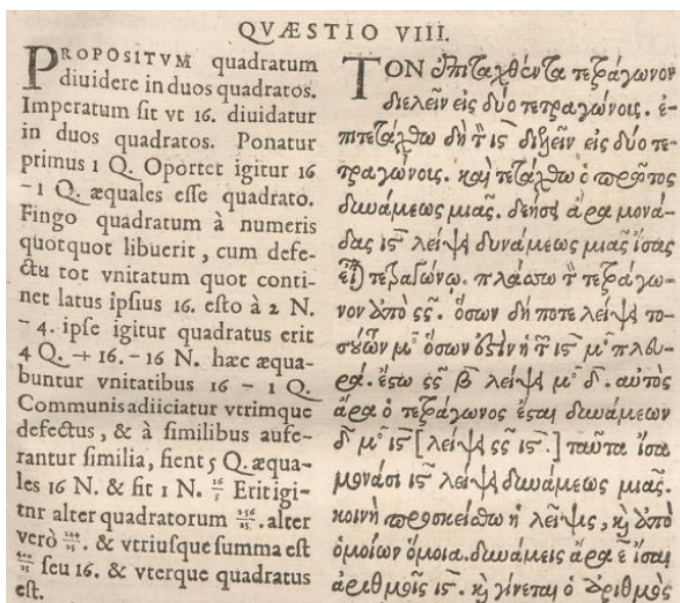 QVÆSTIO VIII.
PROPOSITVM quadratum
diuidere in duos quadratos.
Imperatum sit vt 16. diuidatur
in duos quadratos. Ponatur
primus 1 Q. Oportet igitur 16
– 1 Q. æquales esse quadrato.
Fingo quadratum à numeris
quotquot libuerit, cum defe-
ctu tot vnitatum quot conti-
net latus ipsius 16. esto à 2 N.
– 4. ipse igitur quadratus erit
4 Q. + 16. – 16 N. hæc æqua-
buntur vnitatibus 16 – 1 Q.
Communis adiiciatur vtrimque
defectus, & à similibus aufe-
rantur similia, fient 5 Q. æqua-
les 16 N. & fit 1 N. 16/5 Erit igi-
tnr alter quadratorum 256/25. alter
verò 144/25. & vtriusque summa est
400/25 seu 16. & vterque quadratus
est.
ΤΟΝ ἐπιταχθέντα τετράγωνον
διελεῖν εἰς δύο τετραγώνοις. ἐ-
πιτετάχθω δὴ τ̀ ις̄ διελεῖν εἰς δύο τε-
τραγώνοις. καὶ τετάχθω ὁ πρῶτος
δυνάμεως μιᾶς. δεήσει ἄρα μονά-
δας ις̄ λείψει δυνάμεως μιᾶς ἴσας
εἶ) τετραγώνῳ. πλάσσω τ̀ τετράγω-
νον ἀπὸ ςς̄. ὅσων δή ποτε λείψει το-
σούτων μ° ὅσων ἐστὶν ἡ τ̀ ις̄ μ° πλευ-
ρά. ἔστω ςς̄ β̄ λείψει μ° δ̄. αὐτὸς
ἄρα ὁ τετράγωνος ἔσται δυνάμεων
δ̄ μ° ις̄ [λείψει ςς̄ ις̄.] ταῦτα ἴσα
μονάσι ις̄ λείψει δυνάμεως μιᾶς.
κοινὴ προσκείσθω ἡ λεῖψις, καὶ ἀπὸ
ὁμοίων ὅμοια. δυνάμεις ἄρα ε̄ ἴσαι
ἀριθμοῖς ις̄. καὶ γίνεται ὁ ἀριθμὸς